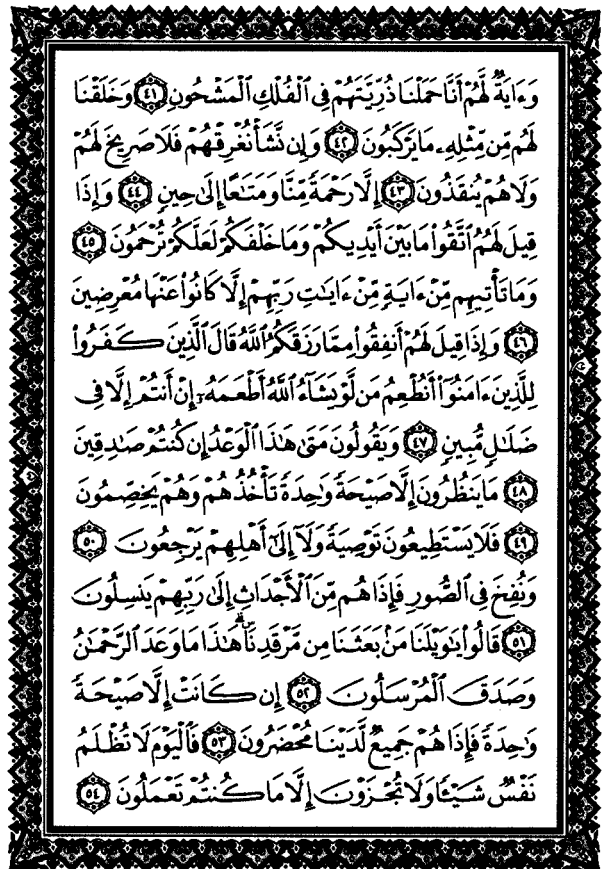 وَءَايَةٌ لَّهُمْ أَنَّا حَمَلْنَا ذُرِّيَّتَهُمْ فِى ٱلْفُلْكِ ٱلْمَشْحُونِ ٤١ وَخَلَقْنَا
لَهُم مِّن مِّثْلِهِۦ مَا يَرْكَبُونَ ٤٢ وَإِن نَّشَأْ نُغْرِقْهُمْ فَلَا صَرِيخَ لَهُمْ
وَلَا هُمْ يُنقَذُونَ ٤٣ إِلَّا رَحْمَةً مِّنَّا وَمَتَٰعًا إِلَىٰ حِينٍ ٤٤ وَإِذَا
قِيلَ لَهُمُ ٱتَّقُوا۟ مَا بَيْنَ أَيْدِيكُمْ وَمَا خَلْفَكُمْ لَعَلَّكُمْ تُرْحَمُونَ ٤٥
وَمَا تَأْتِيهِم مِّنْ ءَايَةٍ مِّنْ ءَايَٰتِ رَبِّهِمْ إِلَّا كَانُوا۟ عَنْهَا مُعْرِضِينَ
٤٦ وَإِذَا قِيلَ لَهُمْ أَنفِقُوا۟ مِمَّا رَزَقَكُمُ ٱللَّهُ قَالَ ٱلَّذِينَ كَفَرُوا۟
لِلَّذِينَ ءَامَنُوٓا۟ أَنُطْعِمُ مَن لَّوْ يَشَآءُ ٱللَّهُ أَطْعَمَهُۥٓ إِنْ أَنتُمْ إِلَّا فِى
ضَلَٰلٍ مُّبِينٍ ٤٧ وَيَقُولُونَ مَتَىٰ هَٰذَا ٱلْوَعْدُ إِن كُنتُمْ صَٰدِقِينَ
٤٨ مَا يَنظُرُونَ إِلَّا صَيْحَةً وَٰحِدَةً تَأْخُذُهُمْ وَهُمْ يَخِصِّمُونَ
٤٩ فَلَا يَسْتَطِيعُونَ تَوْصِيَةً وَلَآ إِلَىٰٓ أَهْلِهِمْ يَرْجِعُونَ ٥٠
وَنُفِخَ فِى ٱلصُّورِ فَإِذَا هُم مِّنَ ٱلْأَجْدَاثِ إِلَىٰ رَبِّهِمْ يَنسِلُونَ
٥١ قَالُوا۟ يَٰوَيْلَنَا مَنۢ بَعَثَنَا مِن مَّرْقَدِنَا ۗ هَٰذَا مَا وَعَدَ ٱلرَّحْمَٰنُ
وَصَدَقَ ٱلْمُرْسَلُونَ ٥٢ إِن كَانَتْ إِلَّا صَيْحَةً
وَٰحِدَةً فَإِذَا هُمْ جَمِيعٌ لَّدَيْنَا مُحْضَرُونَ ٥٣ فَٱلْيَوْمَ لَا تُظْلَمُ
نَفْسٌ شَيْـًٔا وَلَا تُجْزَوْنَ إِلَّا مَا كُنتُمْ تَعْمَلُونَ ٥٤